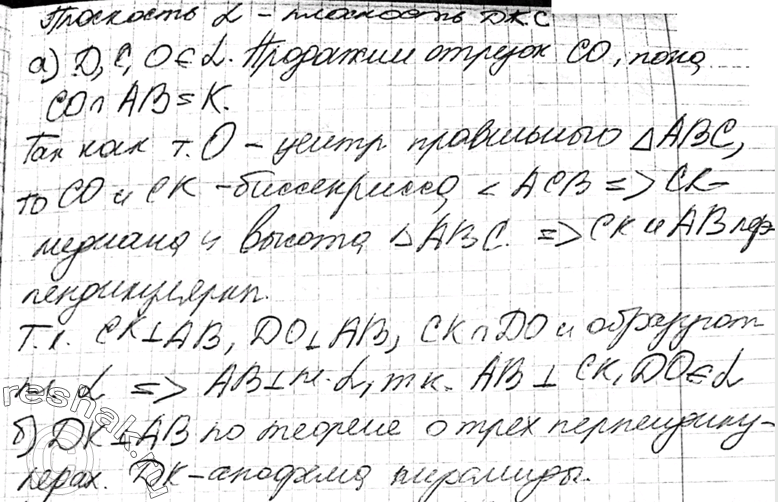 Плоскость α - плоскость DKC
а) D, C, O ∈ α. Продолжим отрезок CO, пока
CO ∩ AB = K.
Так как т. O - центр правильного △ABC,
то CO и CK - биссектрисса ∠ACB => CK-
медиана и высота △ABC. => CK и AB пер-
пендикулярн.
Т.к. CK⊥AB, DO⊥AB, CK∩DO и образуют
пл. α => AB⊥пл. α, т.к. AB ⊥ CK, DO∈α
б) DK⊥AB по теореме о трех перпендику-
лярах. DK-апофема пирамиды.
reshak.ru